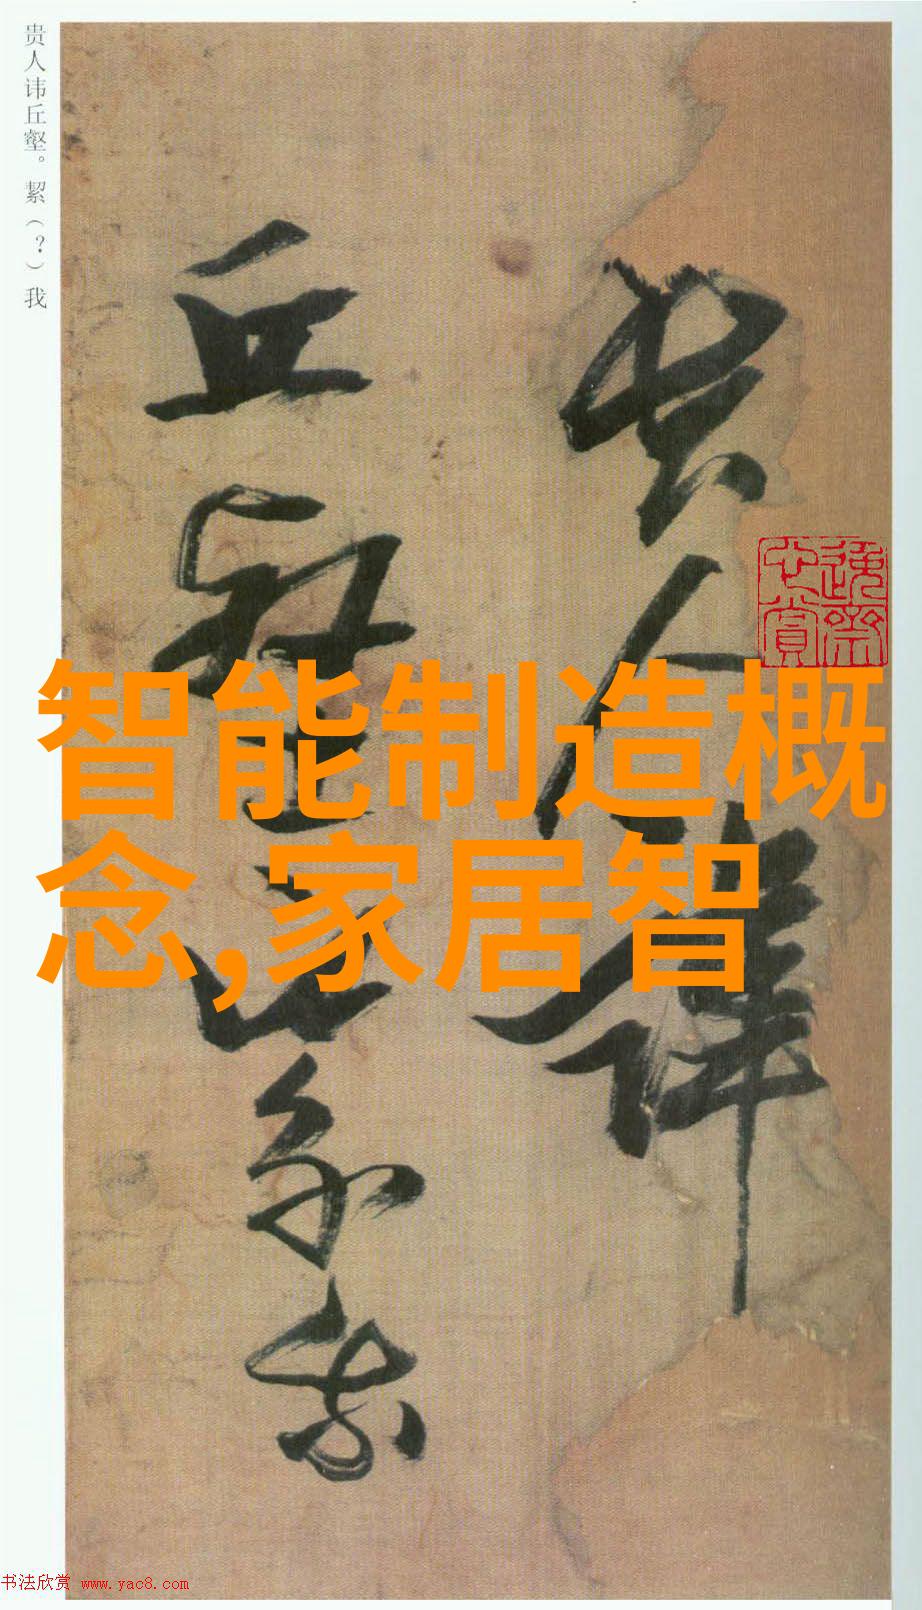 贵人讳丘壑。絜（？）我
贵人讳
丘壑
絜我
智能制造概
念,家居智
书法欣赏 www.yac8.com